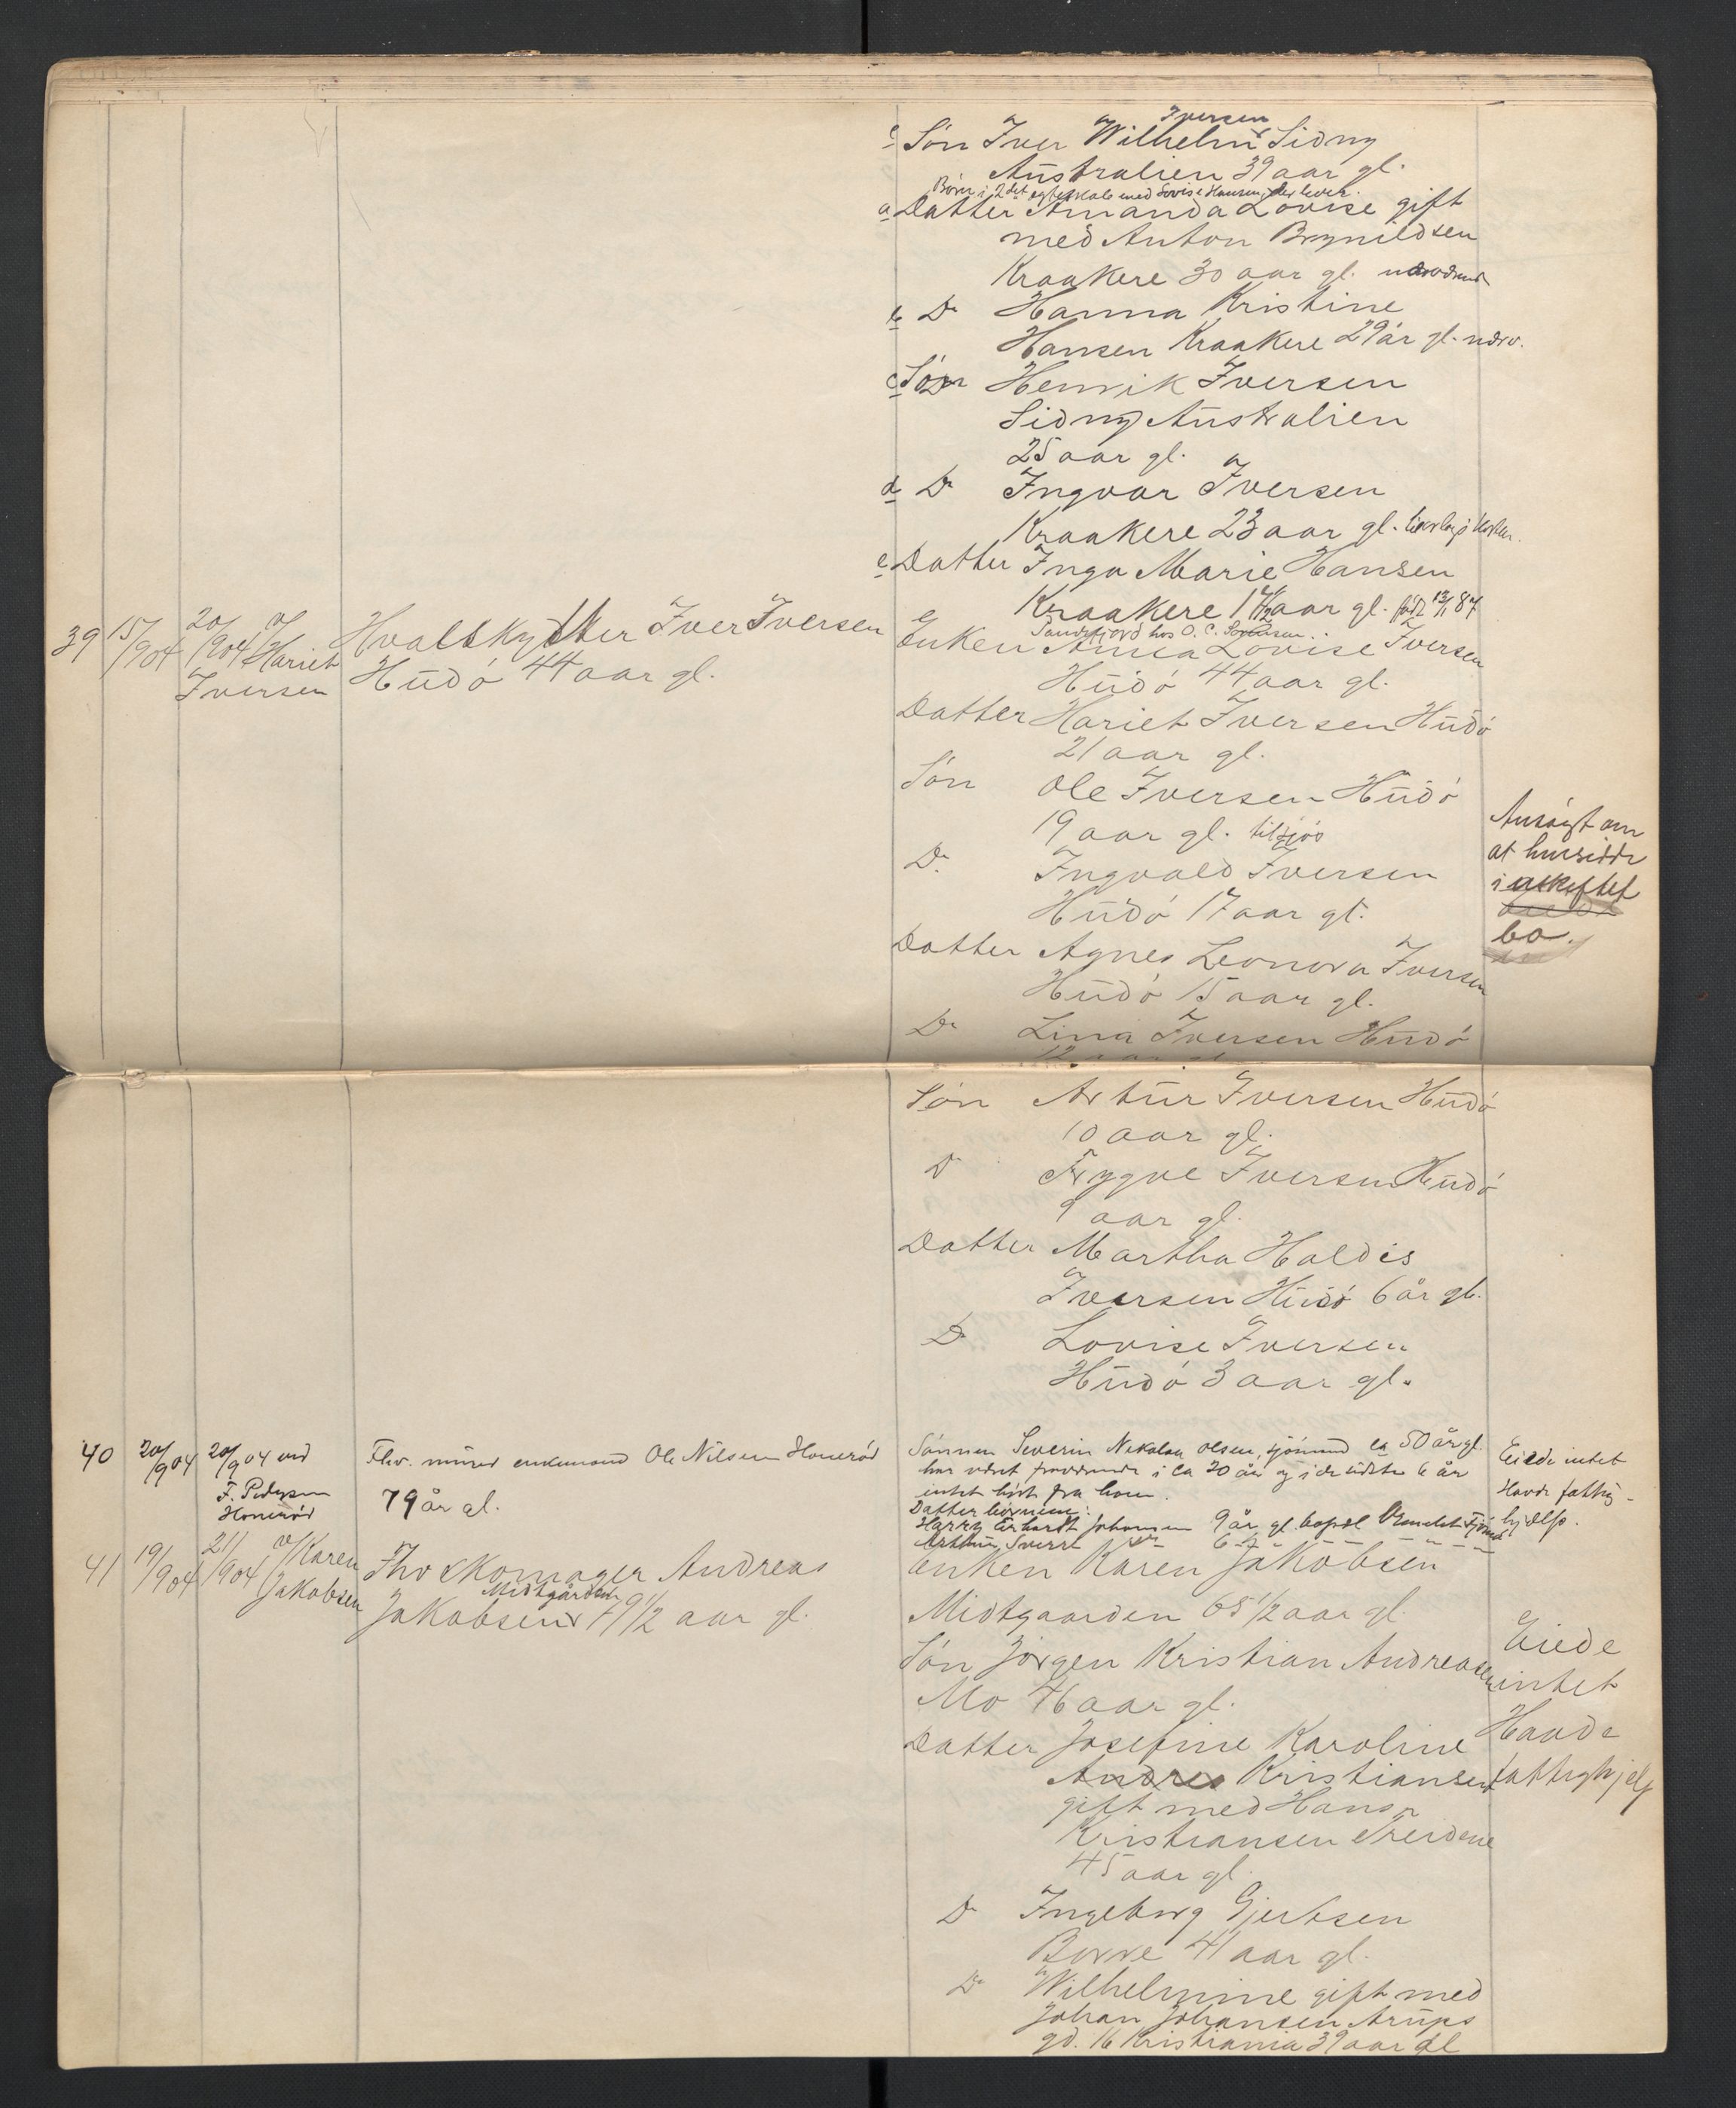 Iversen
c Søn Iver Wilhelm Sidny
Australien 39 aar gl.
Børn i 2det egteskab med Lovise Hansen, der lever.
a Datter Amanda Lovise gift
med Anton Brynildsen
Kraakere 30 aar gl. nærværende
b Do Hanna Kristine
Hansen Kraakere 29 år gl. nærv.
c Søn Henrik Iversen
Sidny Australien
25 aar gl.
d Do Ingvar Iversen
Kraakere 23 aar gl.
e Datter Inga Marie Hansen
Kraakere 17 aar gl. født 13/1 87
Sandefjord hos O. C.
39 15/904 20/904 v/ Hariet Iversen
Hvalskytter Iver Iversen
Hudø 44 aar gl.
Enken Anna Lovise Iversen
Hudø 44 aar gl.
Datter Hariet Iversen Hudø
21 aar gl.
Søn Ole Iversen Hudø
19 aar gl. tilsjøs
Do Ingvald Iversen
Hudø 17 aar gl.
Datter Agnes Leonora Iversen
Hudø 15 aar gl.
Do Lina Iversen Hudø
12 aar gl.
Ansøgt om
at hensidde
i uskiftet
bo.
Søn Artur Iversen Hudø
10 aar gl.
Do Trygve Iversen Hudø
9 aar gl.
Datter Martha Haldis
Iversen Hudø 6 år gl.
Do Lovise Iversen
Hudø 3 aar gl.
40 20/904 20/904 ved
F. Pedersen
Honerød
Fhv. murer enkemand Ole Nilsen Honerød
79 år gl.
Sønnen Severin Nikolai Olsen, sjømand ca 50 år gl.
har været fraværende i ca 20 år og i de sidste 6 år
intet hørt fra ham.
Datterbørnene:
Harry Erhardt Johansen 9 år gl. bopæl Tjømø
Arthur Sverre do 6
Eiede intet
Havde fattig-
hjælp.
41 19/904 21/904 v/ Karen Jakobsen
Fhv skomager Andreas
Midtgården
Jakobsen 79 1/2 aar gl.
Enken Karen Jakobsen
Midtgaarden 65 1/2 aar gl.
Søn Jørgen Kristian Andreasen
Mo 46 aar gl.
Datter Josefine Karoline
Andrea Kristiansen
gift med Hans
Kristiansen
45 aar gl.
Do Ingeborg Gjertsen
Borre 41 aar gl.
Do Wilhelmine gift med
Johan Johansen Arups
gd. 16 Kristiania 39 aar gl
Eiede
intet
Havde
fattighjelp